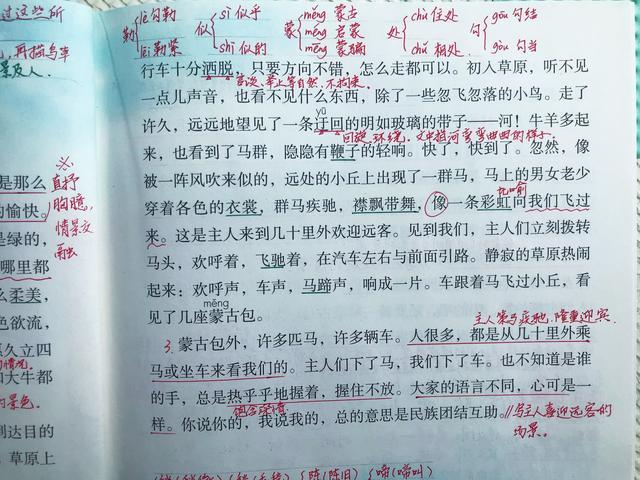 过这些所
再描写事
景及人.
是那么
的愉快。
是绿的，
哪里都
么柔美，
色欲流，
久立四
和大牛都
景色.
到达目的
草原上
※
直抒
胸臆,
情景交
融
勒 lè 勾勒
lēi 勒紧
似 sì 似乎
shì 似的
蒙 měng 蒙古
méng 启蒙
mēng 蒙骗
处 chǔ 住处
chǔ 相处
句 gōu 句结
gòu 句当
行车十分洒脱，只要方向不错，怎么走都可以。初入草原，听不见
言谈、举止等自然,不拘束。
一点儿声音，也看不见什么东西，除了一些忽飞忽落的小鸟。走了
yū
许久，远远地望见了一条迂回的明如玻璃的带子——河！牛羊多起
回旋,环绕。文中指河弯弯曲曲的样子
来，也看到了马群，隐隐有鞭子的轻响。快了，快到了。忽然，像
被一阵风吹来似的，远处的小丘上出现了一群马，马上的男女老少
比喻
穿着各色的衣裳，群马疾驰，襟飘带舞，像一条彩虹向我们飞过
来。这是主人来到几十里外欢迎远客。见到我们，主人们立刻拨转
马头，欢呼着，飞驰着，在汽车左右与前面引路。静寂的草原热闹
起来：欢呼声，车声，马蹄声，响成一片。车跟着马飞过小丘，看
měng
见了几座蒙古包。
主人策马疾驰,隆重迎宾.
3. 蒙古包外，许多匹马，许多辆车。人很多，都是从几十里外乘
马或坐车来看我们的。主人们下了马，我们下了车。也不知道是谁
的手，总是热乎乎地握着，握住不放。大家的语言不同，心可是一
饱含深情
样。你说你的，我说我的，总的意思是民族团结互助。//写主人喜迎远客的
场景。
陈(陈旧) 啼(啼叫)